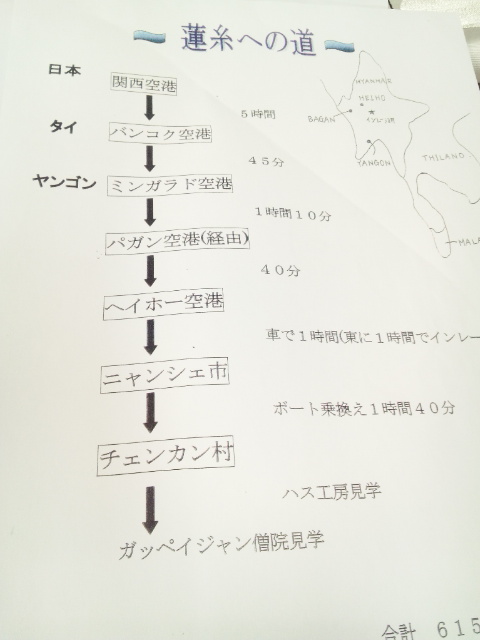 蓮糸への道
日本
関西空港
5時間
タイ
バンコク空港
45分
ヤンゴン
ミンガラド空港
1時間10分
パガン空港(経由)
40分
ヘイホー空港
車で1時間(東に1時間でインレー
ニャンシェ市
ボート乗換え1時間40分
チェンカン村
ハス工房見学
ガッペイジャン僧院見学
合計 615
MYANMAR
HEIHO
BAGAN
インレー湖
YANGON
THILAND
MALA